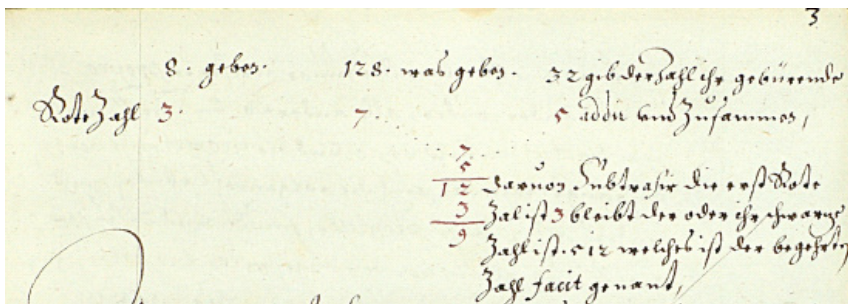 3
8. geben. 128. was geben. 32 gib der Zahl ihr gebürende
Rote Zahl 3. 7. 5 addir vnd Zusammen,
7
5
12 daruon Subtrahir die erst Rote
3 Zal ist 3 bleibt der oder ihr schwarze
9 Zahl ist. 512 welches ist der begehrten
Zahl facit genant,